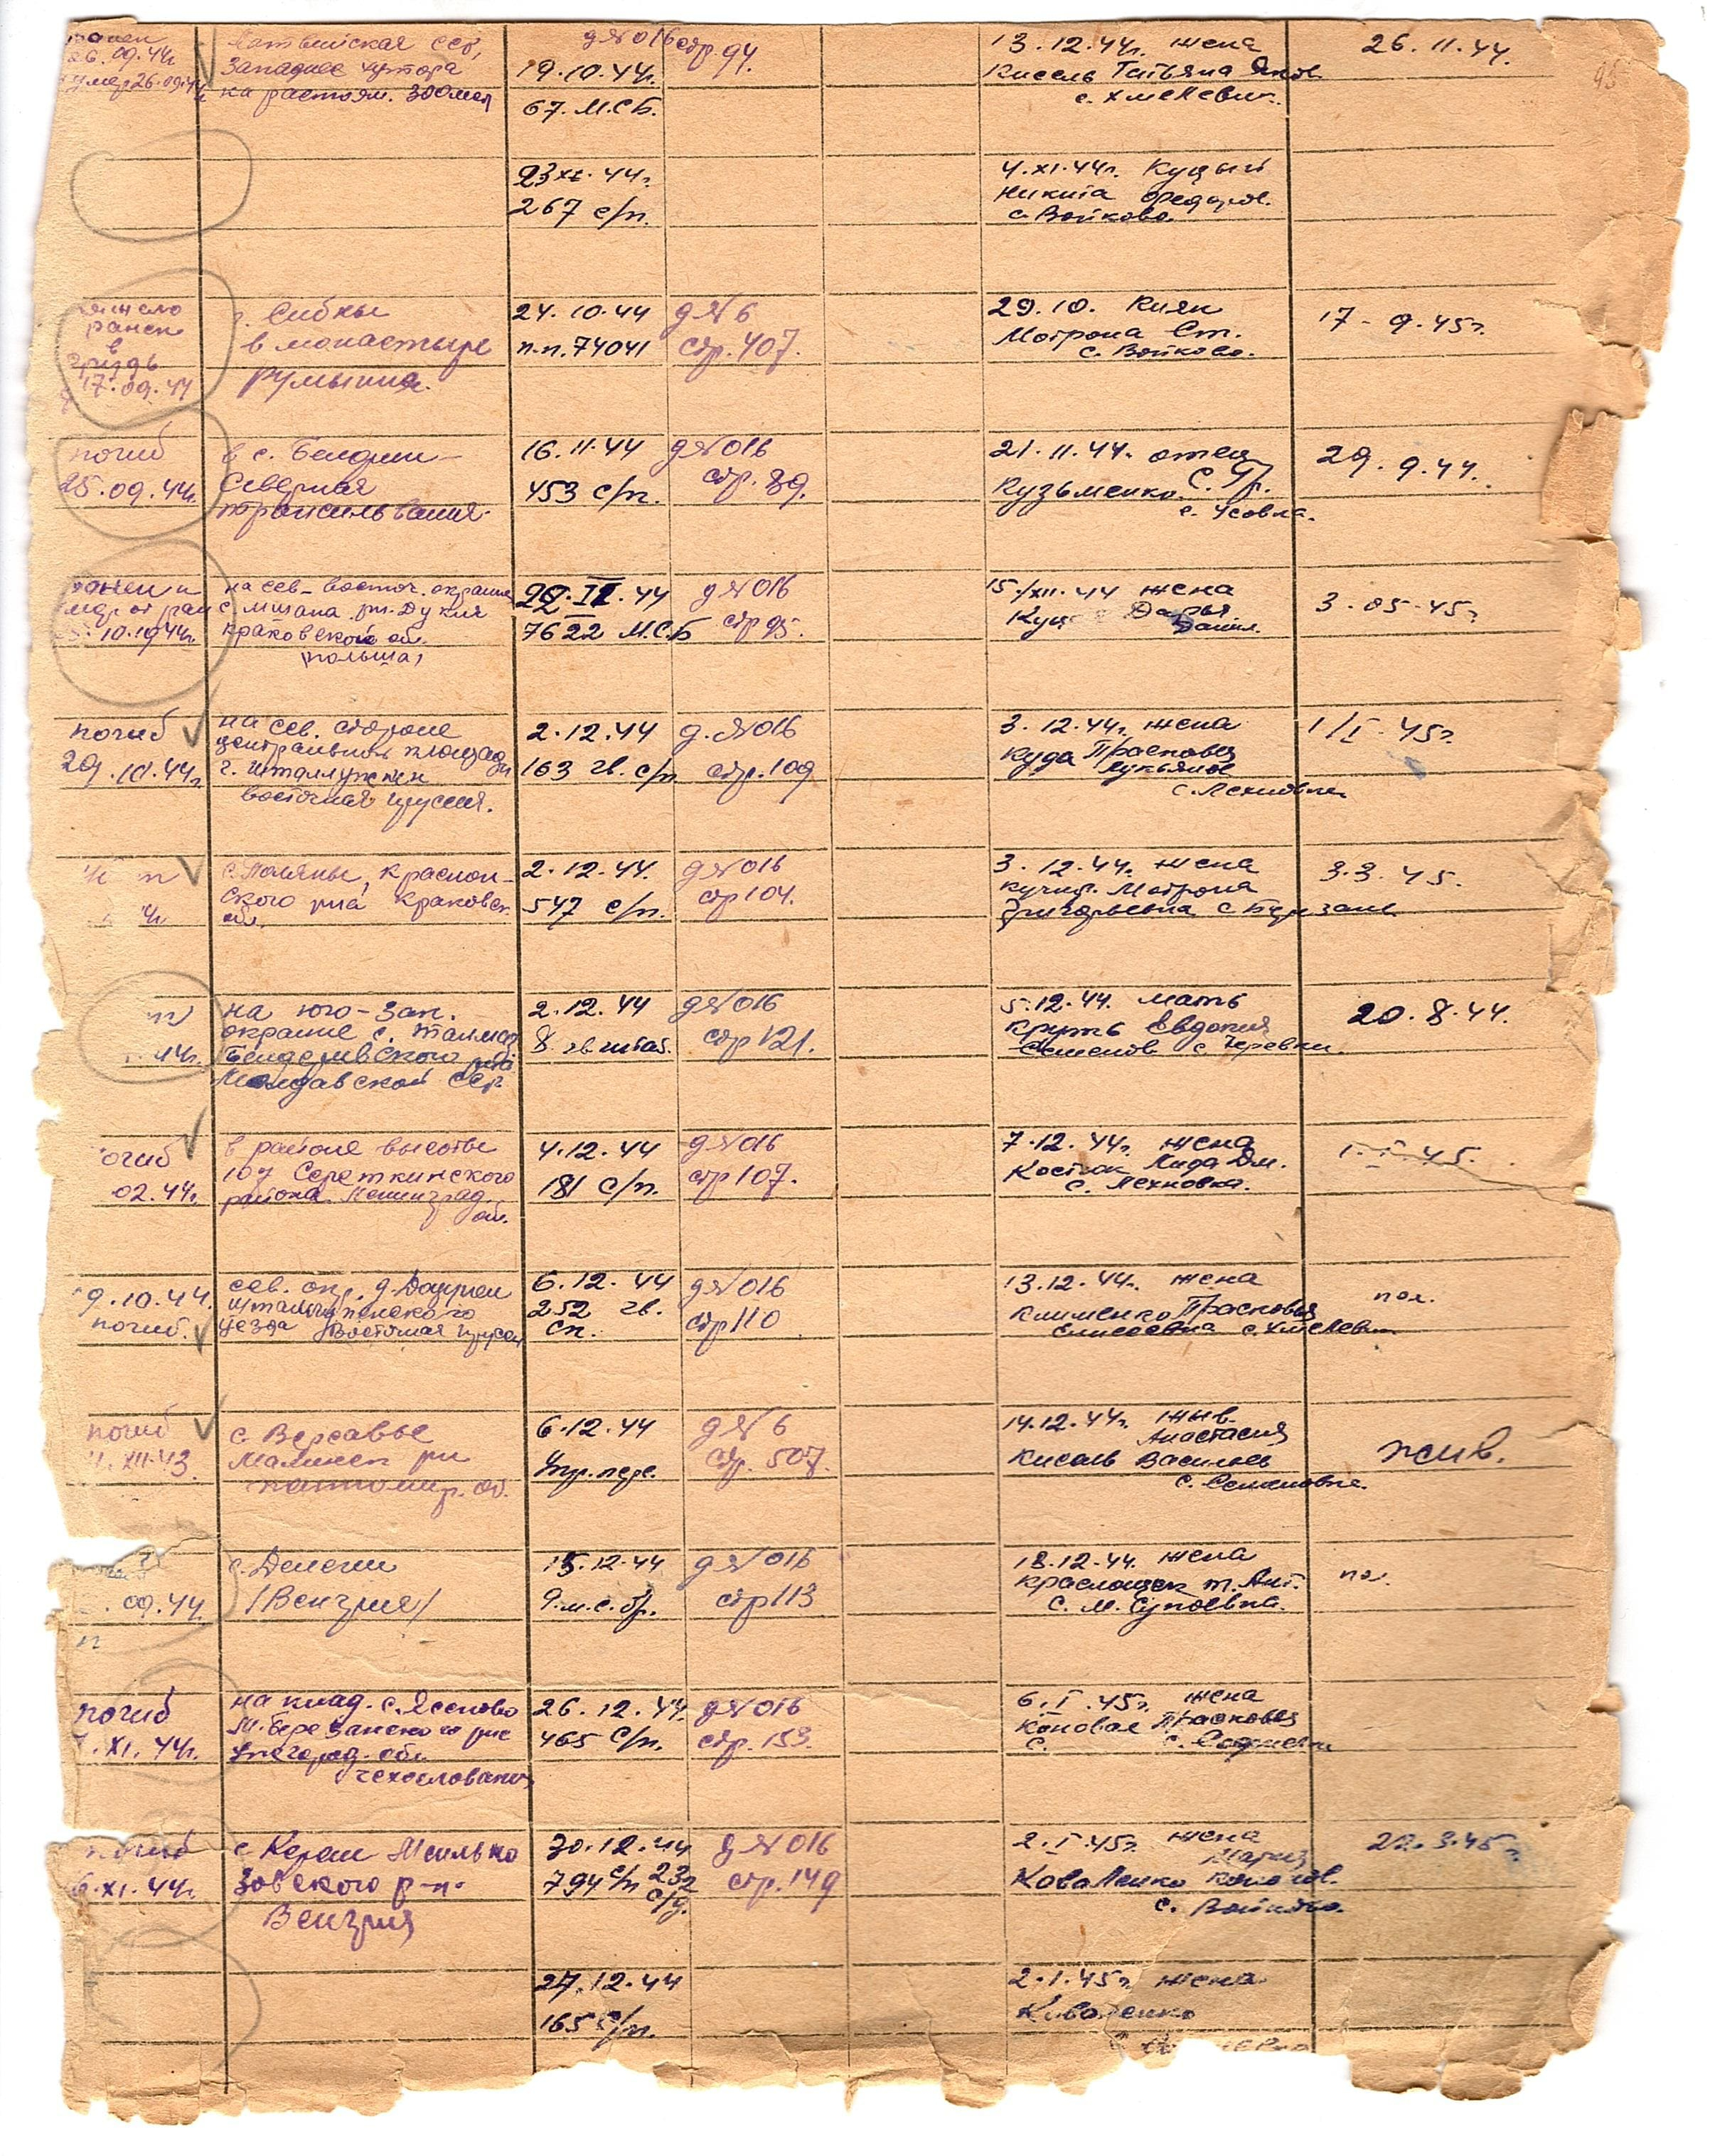 ранен
26.09.44г
умер 26.09.44
Латвийская ССР,
Западнее хутора
на растоян. 300 мет
19.10.44г.
67. М.С.Б.
д№016 стр. 94.
13.12.44г. жена
Кисель Татьяна Яков
с. Хмелевик.
26.11.44.
95
23 XI. 44г.
267 с/п.
4.XI.44г. Куцый
Никита Федоров.
с. Войково.
ранен
в
грудь
17.09.44
в монастыре
Румыния.
24.10.44
п.п. 74041
д№6
стр. 407.
29.10. Кияк
Мотрона Ст.
с. Войково.
17-9.45г.
погиб
25.09.44г.
в с.
Северная
трансильвания.
16.11.44
453 с/п.
д№016
стр. 89.
21.11.44. отец
Кузьменко С. Гр.
с. Усовка.
29.9.44.
ранен и
10.1944г
на сев-восточ. окраине
с. Мшана рн. Дукля
краковской об.
польша,
44
7622 М.С.Б
д№016
стр 95.
15/XII.44 жена
Дарья
Данил.
3.05.45г.
погиб
29.10.44г
на сев. стороне
центральной площади
г. Шталлупенен
восточная пруссия.
2.12.44
163 гв. с/п
д.№016
стр. 109
3.12.44г. жена
Куда Прасковья
Лукьянов
с. Лехновка
1/I-45г.
с. Поляны,
ского рна Краковск.
об.
2.12.44.
547 с/п.
д№016
стр 104.
3.12.44г. жена
Мотрона
Григорьевна с Березань
3.3.45.
44г.
на юго-зап.
окраине с. Талмаз
Бендеривского рна
Молдавской ССР.
2.12.44
8. гв штаб.
д№016
стр 121.
5.12.44. мать
Круть Евдокия
Семенов с. Черевки.
20.8.44.
02.44г.
в районе высоты
107 Середкинского
района Ленинград.
об.
4.12.44
181 с/п.
д№016
стр 107.
7.12.44г. жена
Костюк Лида Дм.
с. Лехновка.
1.I.45.
9.10.44.
погиб.
сев. окр. д.
Шталлупенского
уезда Восточная Прусси
6.12.44
252 гв.
сп.
д№016
стр 110
13.12.44г. жена
Клименко Прасковья
Елисеевна с. Хмелевик
пол.
погиб
XII.43.
с.
Малинск рн
житомир. об.
6.12.44
Упр. пере.
д№6
стр. 507.
14.12.44г. жив.
Анастасия
Кисель Васильев
с. Семеновка.
жив.
09.44
с.
/Венгрия/
15.12.44
9.м.с.бр.
д№016
стр 113
18.12.44. жена
Краснощек т. Ант.
С. М. Супоевка.
по.
погиб
.XI.44г.
на клад. с. Ясеново
М. Березанского рне
Ужгород. обл.
чехословакия
26.12.44.
465 с/п.
д№016
стр. 153.
6.I.45г. жена
Коновал Прасковья
С.
погиб
6.XI.44г.
с Мишко
зовского р-н.
Венгрия
30.12.44
794 с/п 232
с/д.
д№016
стр. 149
2.I.45г. жена
Мария
Коваленко
с. Войково.
22.3.45г.
27.12.44
165 с/п.
2.1.45г жена
Коваленко